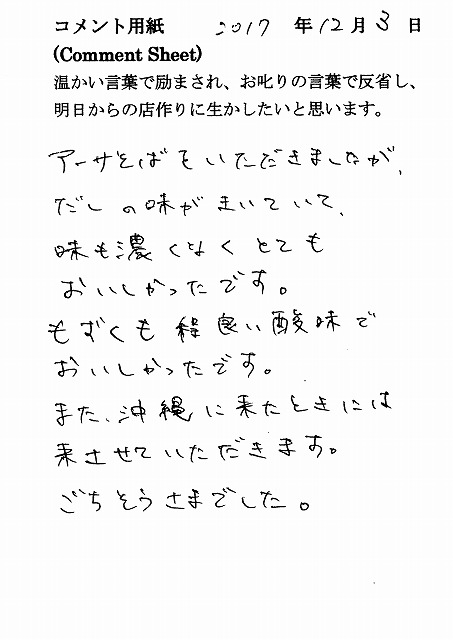 コメント用紙 2017 年 12 月 3 日
(Comment Sheet)
温かい言葉で励まされ、お叱りの言葉で反省し、
明日からの店作りに生かしたいと思います。
アーサそばをいただきましたが、
だしの味がきいていて、
味も濃くなくとても
おいしかったです。
もずくも程良い酸味で
おいしかったです。
また、沖縄に来たときには
来させていただきます。
ごちそうさまでした。